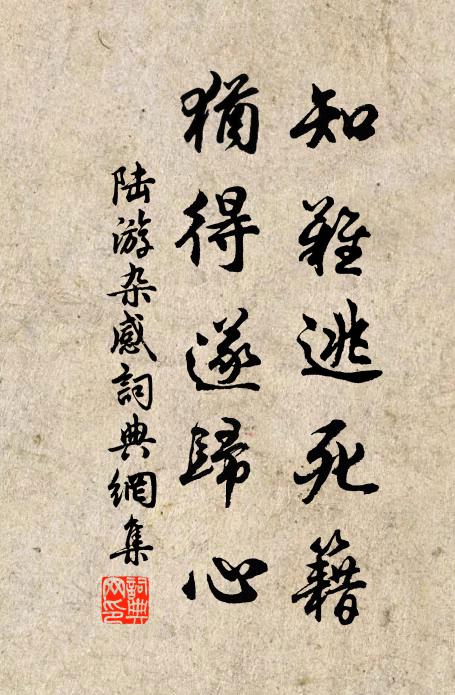 知難逃死籍
猶得遂歸心
陆游杂感詞典網集
詞典